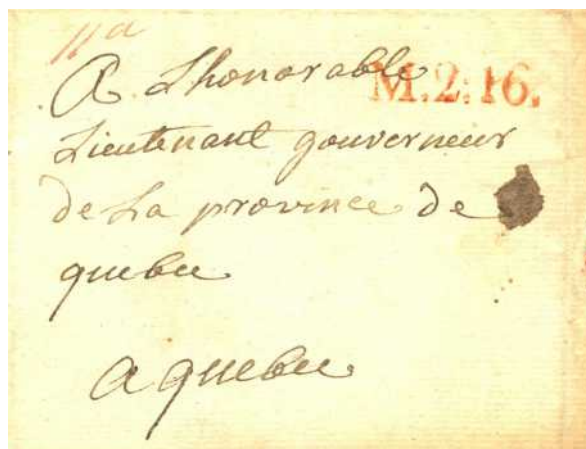 A Lhonorable
M.2:16.
Lieutenant gouverneur
de La province de
quebec
a quebec